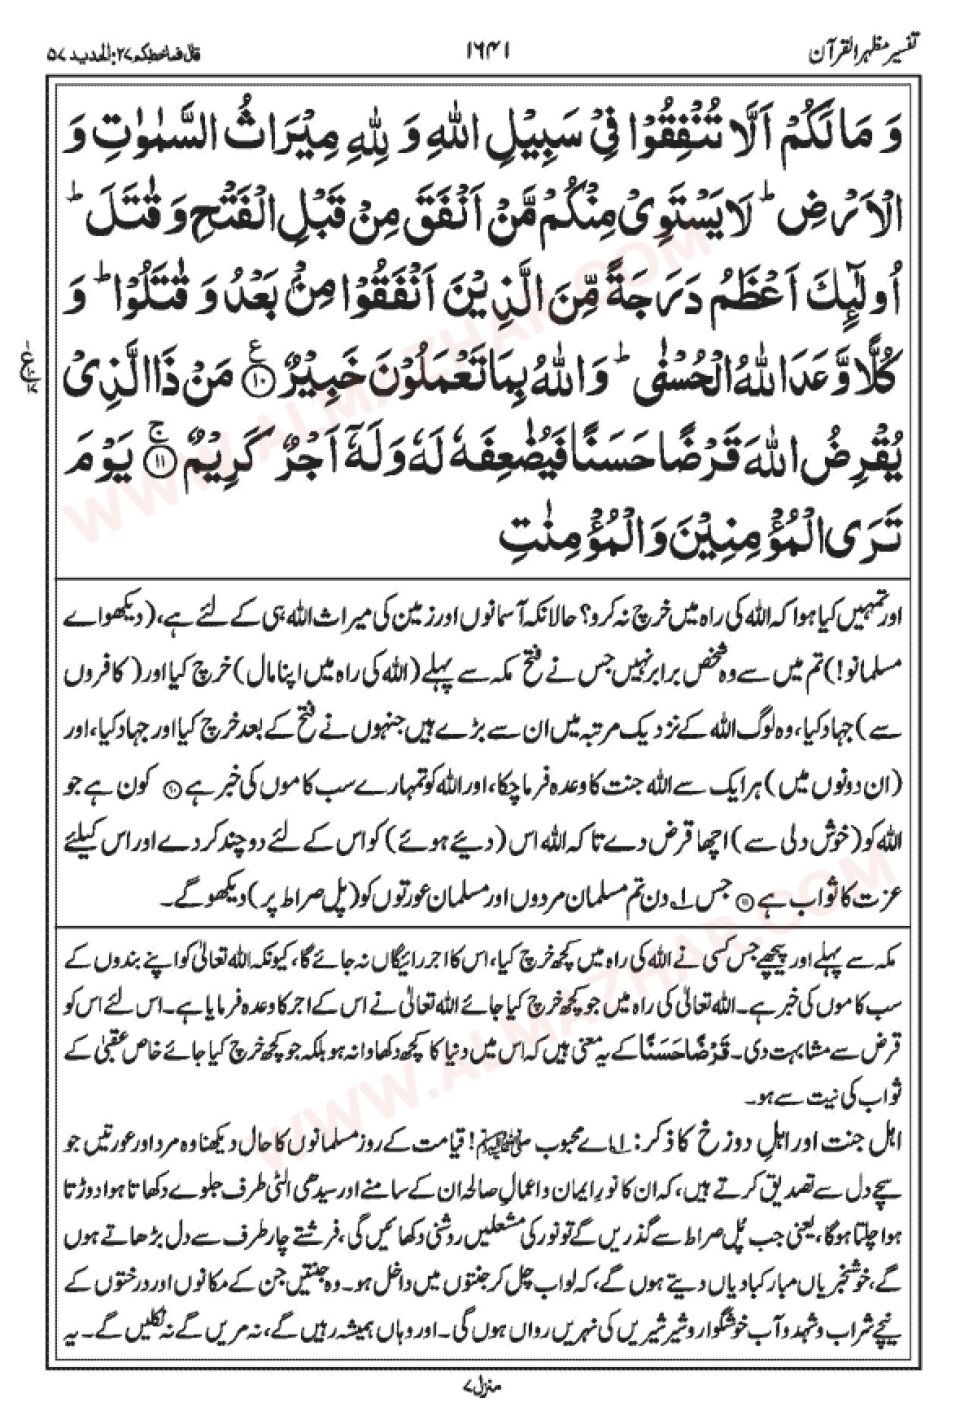 تفسیر مظہر القرآن
۱۶۴۱
قال فما خطبکم ۲۷: الحدید ۵۷
وَ مَا لَكُمْ اَلَّا تُنْفِقُوْا فِیْ سَبِیْلِ اللّٰهِ وَ لِلّٰهِ مِیْرَاثُ السَّمٰوٰتِ وَ
الْاَرْضِ ؕ لَا یَسْتَوِیْ مِنْكُمْ مَّنْ اَنْفَقَ مِنْ قَبْلِ الْفَتْحِ وَ قٰتَلَ ؕ
اُولٰٓىِٕكَ اَعْظَمُ دَرَجَةً مِّنَ الَّذِیْنَ اَنْفَقُوْا مِنْۢ بَعْدُ وَ قٰتَلُوْا ؕ وَ
كُلًّا وَّعَدَ اللّٰهُ الْحُسْنٰى ؕ وَ اللّٰهُ بِمَا تَعْمَلُوْنَ خَبِیْرٌ ۱۰ ع مَنْ ذَا الَّذِیْ
یُقْرِضُ اللّٰهَ قَرْضًا حَسَنًا فَیُضٰعِفَهٗ لَهٗ وَ لَهٗۤ اَجْرٌ كَرِیْمٌ ۱۱ ج یَوْمَ
تَرَى الْمُؤْمِنِیْنَ وَ الْمُؤْمِنٰتِ
اور تمہیں کیا ہوا کہ اللہ کی راہ میں خرچ نہ کرو؟ حالانکہ آسمانوں اور زمین کی میراث اللہ ہی کے لئے ہے، (دیکھو اے
مسلمانو!) تم میں سے وہ شخص برابر نہیں جس نے فتح مکہ سے پہلے (اللہ کی راہ میں اپنا مال) خرچ کیا اور (کافروں
سے) جہاد کیا، وہ لوگ اللہ کے نزدیک مرتبہ میں ان سے بڑے ہیں جنہوں نے فتح کے بعد خرچ کیا اور جہاد کیا، اور
(ان دونوں میں) ہر ایک سے اللہ جنت کا وعدہ فرما چکا، اور اللہ کو تمہارے سب کاموں کی خبر ہے ۱۰ کون ہے جو
اللہ کو (خوش دلی سے) اچھا قرض دے تاکہ اللہ اس (دیئے ہوئے) کو اس کے لئے دو چند کر دے اور اس کیلئے
عزت کا ثواب ہے ۱۱ جس ۱ دن تم مسلمان مردوں اور مسلمان عورتوں کو (پل صراط پر) دیکھو گے۔
مکہ سے پہلے اور پیچھے جس کسی نے اللہ کی راہ میں کچھ خرچ کیا، اس کا اجر رائیگاں نہ جائے گا، کیونکہ اللہ تعالیٰ کو اپنے بندوں کے
سب کاموں کی خبر ہے۔ اللہ تعالیٰ کی راہ میں جو کچھ خرچ کیا جائے اللہ تعالیٰ نے اس کے اجر کا وعدہ فرمایا ہے۔ اس لئے اس کو
قرض سے مشابہت دی۔ قَرْضًا حَسَنًا کے یہ معنی ہیں کہ اس میں دنیا کا کچھ دکھاوا نہ ہو بلکہ جو کچھ خرچ کیا جائے خاص عقبیٰ کے
ثواب کی نیت سے ہو۔
اہل جنت اور اہلِ دوزخ کا ذکر: ۱ اے محبوب ﷺ! قیامت کے روز مسلمانوں کا حال دیکھنا وہ مرد اور عورتیں جو
سچے دل سے تصدیق کرتے ہیں، کہ ان کا نورِ ایمان و اعمالِ صالحہ ان کے سامنے اور سیدھی الٹی طرف جلوے دکھاتا ہوا دوڑتا
ہوا چلتا ہوگا، یعنی جب پُل صراط سے گذریں گے تو نور کی مشعلیں روشنی دکھائیں گی، فرشتے چار طرف سے دل بڑھاتے ہوں
گے، خوشخبریاں مبارکبادیاں دیتے ہوں گے، کہ لو اب چل کر جنتوں میں داخل ہو۔ وہ جنتیں جن کے مکانوں اور درختوں کے
نیچے شراب و شہد و آب خوشگوار و شیر شیریں کی نہریں رواں ہوں گی۔ اور وہاں ہمیشہ رہیں گے، نہ مریں گے نہ نکلیں گے۔ یہ
منزل ۷
WWW.ALMAZHAR.COM
WWW.ALMAZHAR.COM